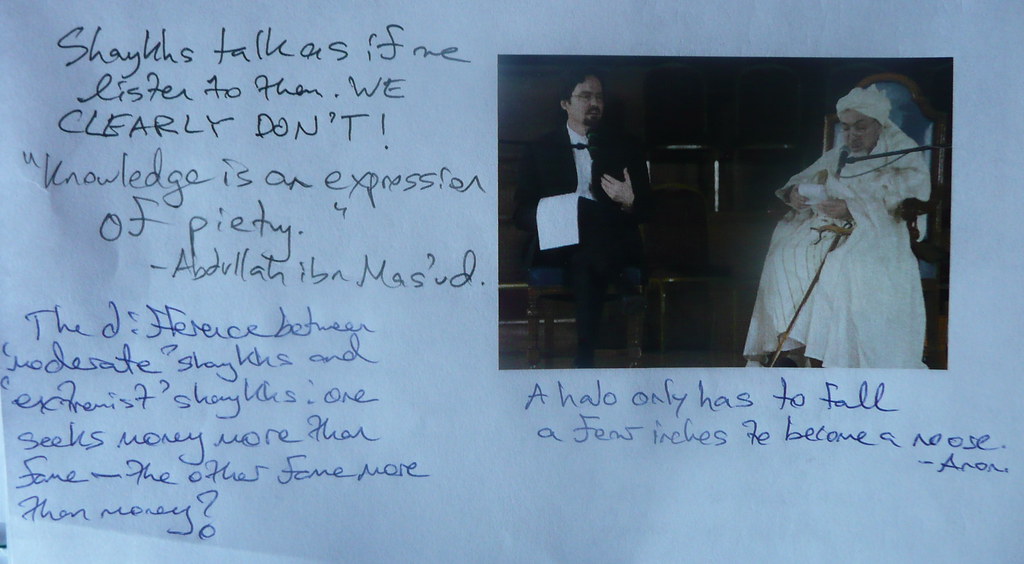 Shaykhs talk as if we
listen to them. WE
CLEARLY DON'T!
"Knowledge is an expression
of piety."
- Abdullah ibn Mas'ud.
The difference between
"moderate" shaykhs and
"extremist" shaykhs: one
seeks money more than
fame — the other fame more
than money?
A halo only has to fall
a few inches to become a noose.
- Anon.